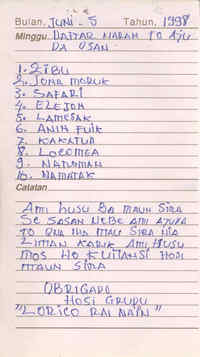 Bulan, JUNI - 5 Tahun, 1998
Minggu DAFTAR NARAN TO AJU
DA OSAN
1. ZIBU
2. JONA MORUK
3. SAFARI
4. ELEJON
5. LAMESAK
6. ANIN FUIK
7. KAKATUA
8. LOROMEA
9. NATUNMAN
10. NAMATAK
Catatan
AMI HUSU BA MAUN SIRA
SE SASAN NEBE AMI AJUDA
TO ONA IHA MAU SIRA NIA
LIMAN KARIK AMI HUSU
MOS HO KUITANSI HOSI
MAUN SIRA
OBRIGADO
HOSI GRUPU
"LORICO RAI NAIN"